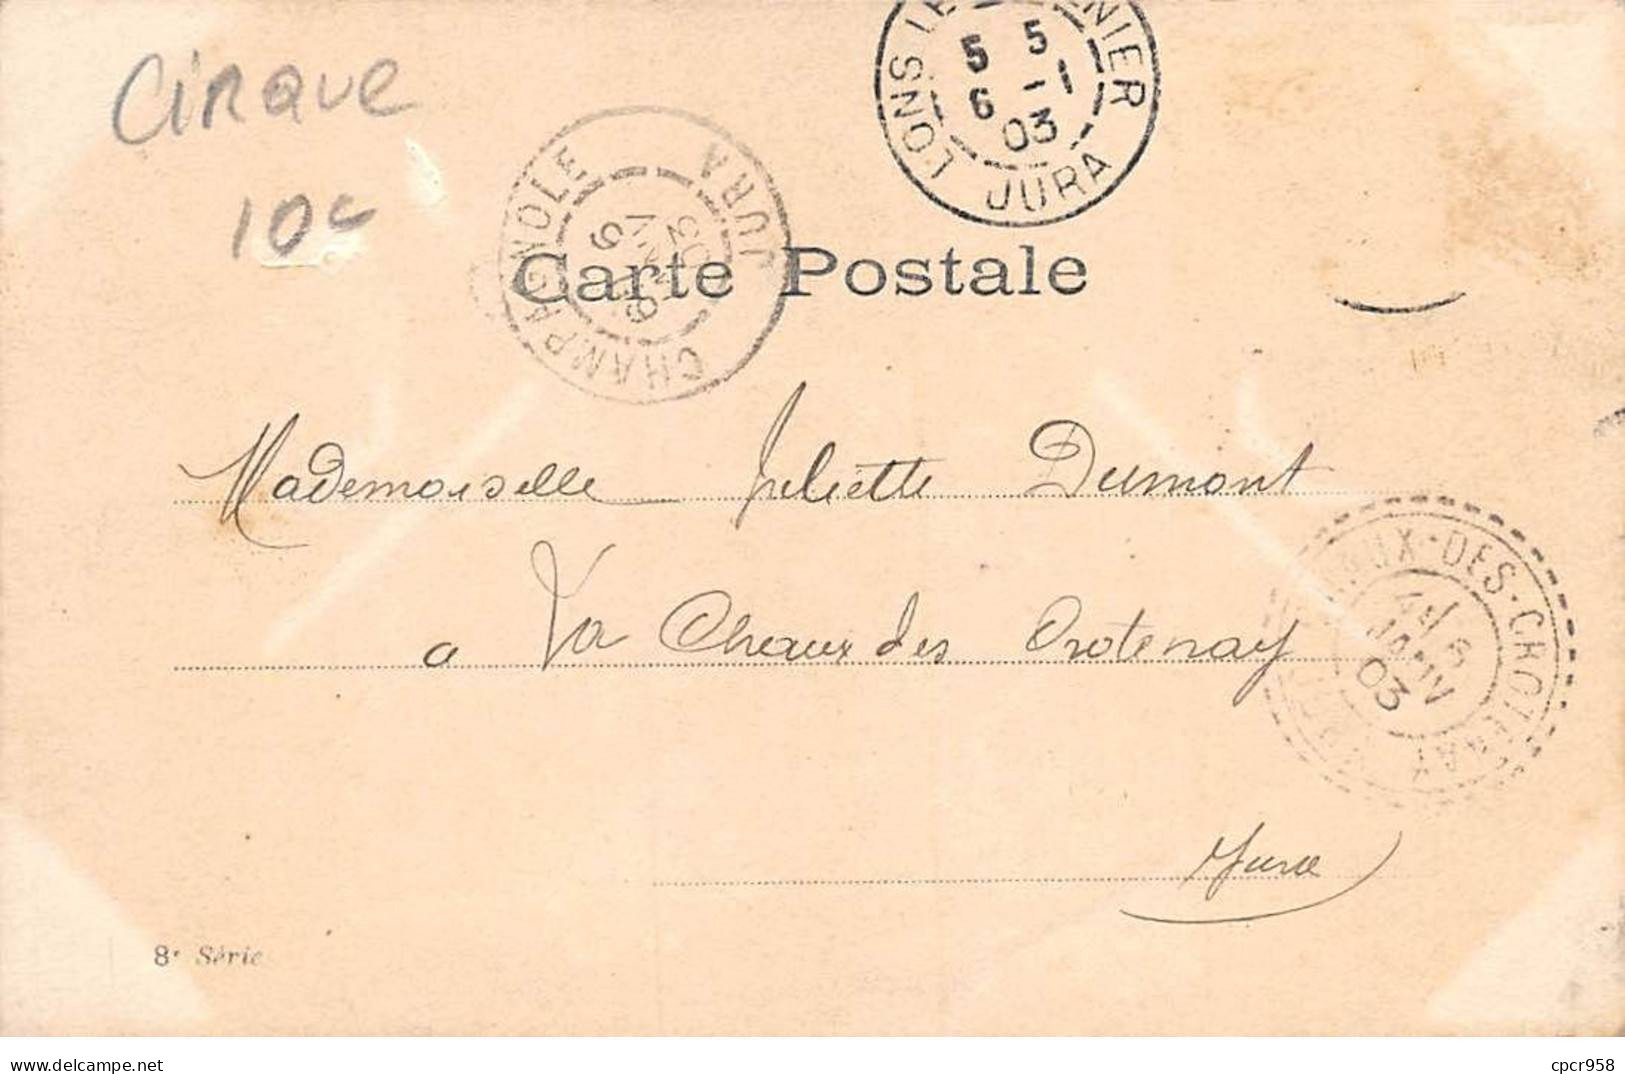 CIRQUE
10c
LONS LE NIER
5 5
6 -1
03
JURA
CHAMPAGNOLE
JURA
6
03
Carte Postale
Mademoiselle Juliette Dumont
a La Cheaux des Crotenay
Jura
AUX-DES-CROTENAY
6
JANV
03
8e Série
cpcr958